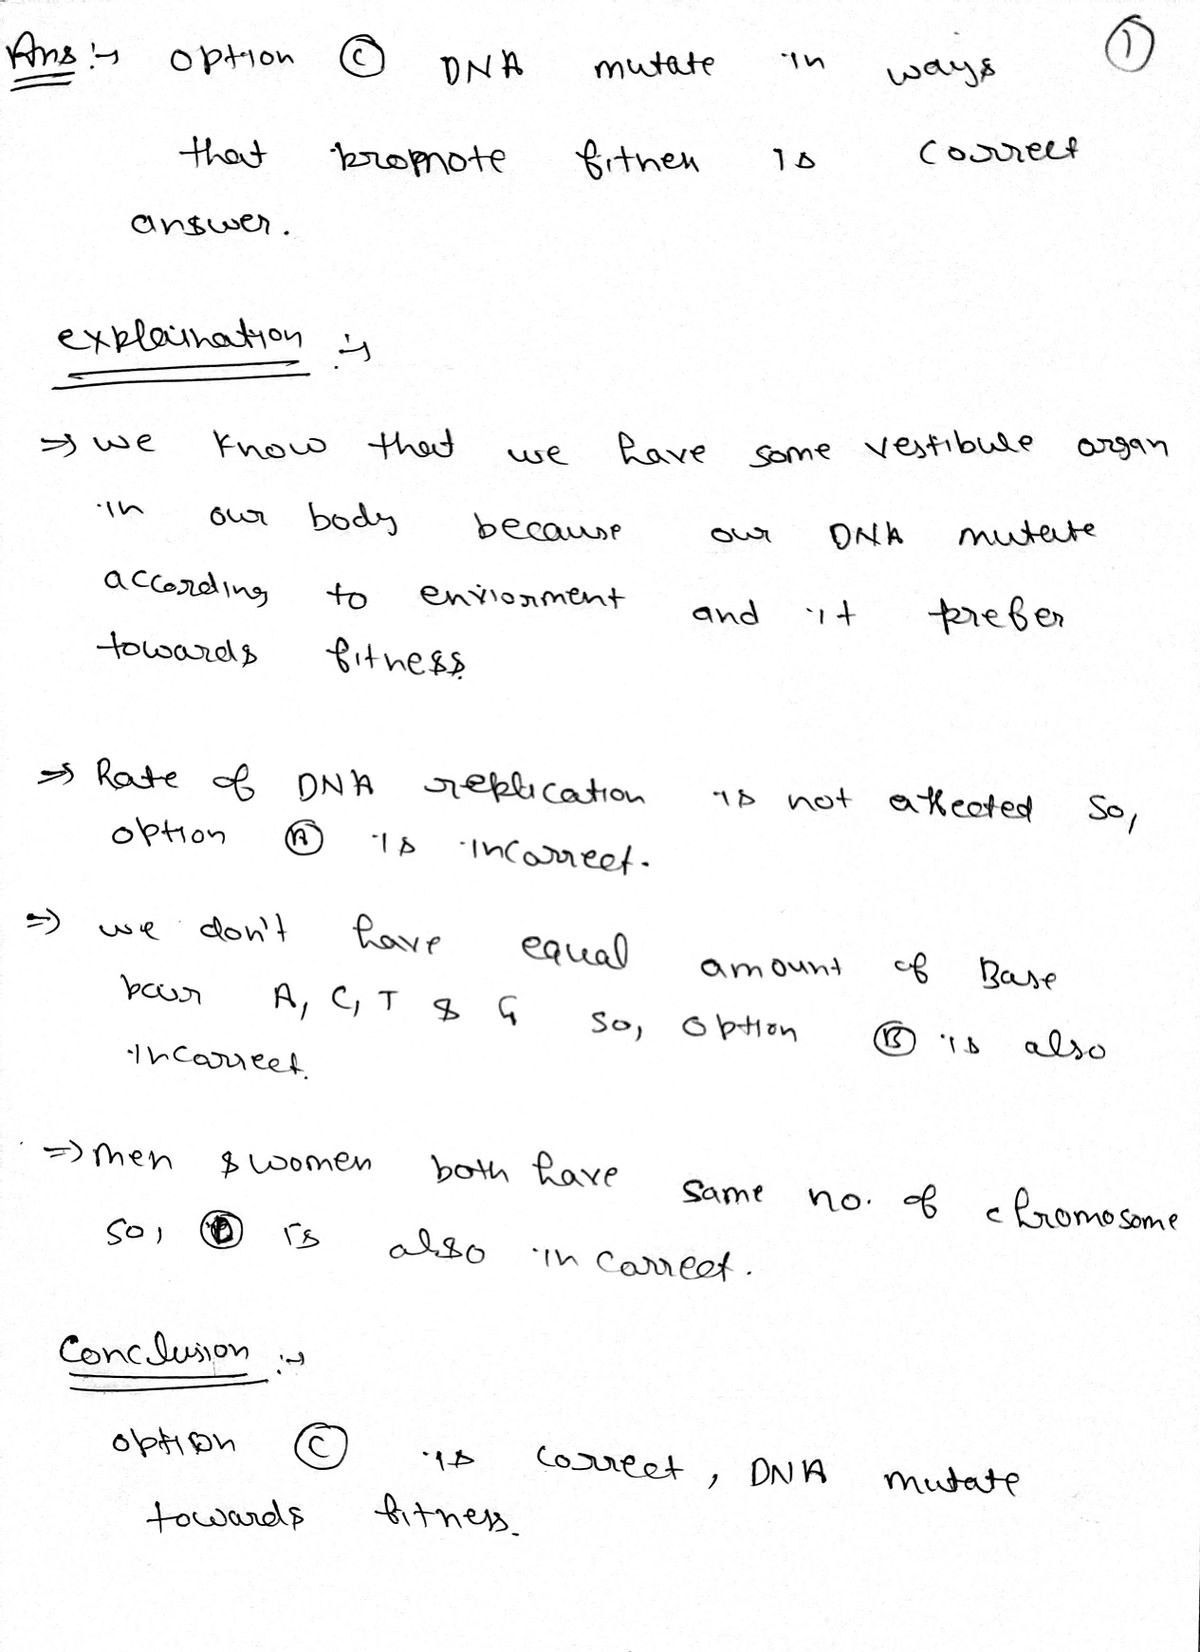 Ans :→ option Ⓒ DNA mutate in ways ①
that promote fitness is correct
answer.
explaination :→
⇒ we know that we have some vestibule organ
in our body because our DNA mutate
according to enviorment and it prefer
towards fitness.
⇒ Rate of DNA replication is not affected so,
option Ⓐ is incorrect.
⇒ we don't have equal amount of Base
pair A, C, T & G so, option Ⓑ is also
incorrect.
⇒ men & women both have same no. of chromosome
so, Ⓓ is also incorrect.
Conclusion :→
option Ⓒ is correct, DNA mutate
towards fitness.